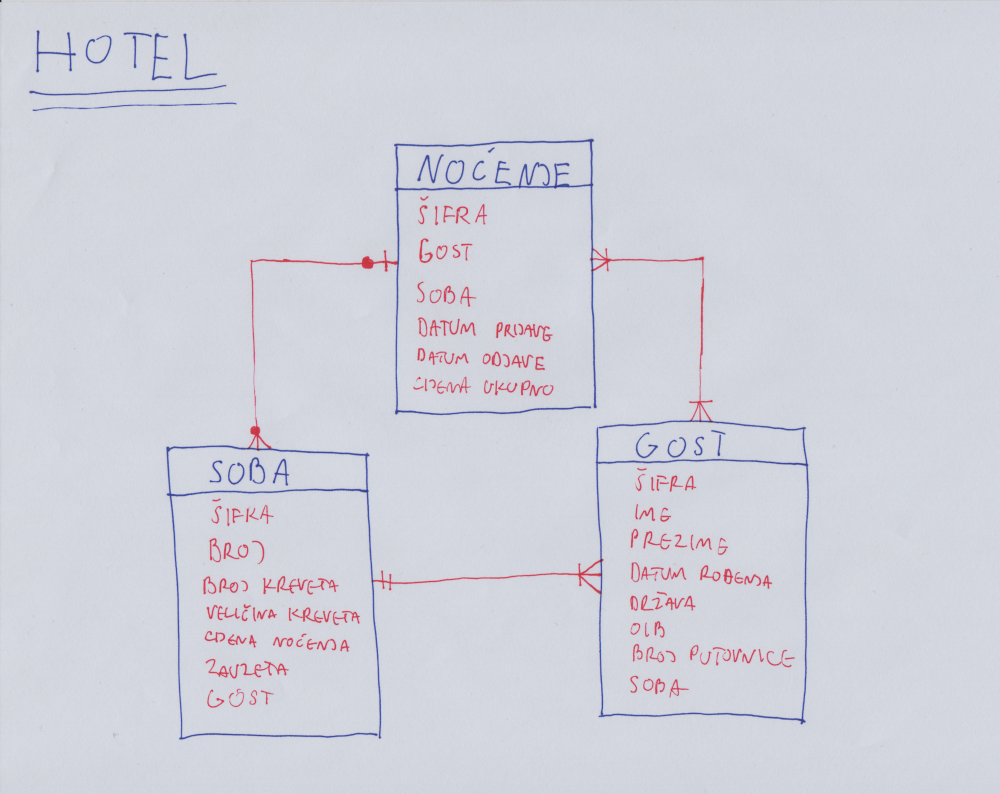 HOTEL
NOĆENJE
ŠIFRA
GOST
SOBA
DATUM PRIJAVE
DATUM ODJAVE
CIJENA UKUPNO
SOBA
ŠIFRA
BROJ
BROJ KREVETA
VELIČINA KREVETA
CIJENA NOĆENJA
ZAUZETA
GOST
GOST
ŠIFRA
IME
PREZIME
DATUM ROĐENJA
DRŽAVA
OIB
BROJ PUTOVNICE
SOBA